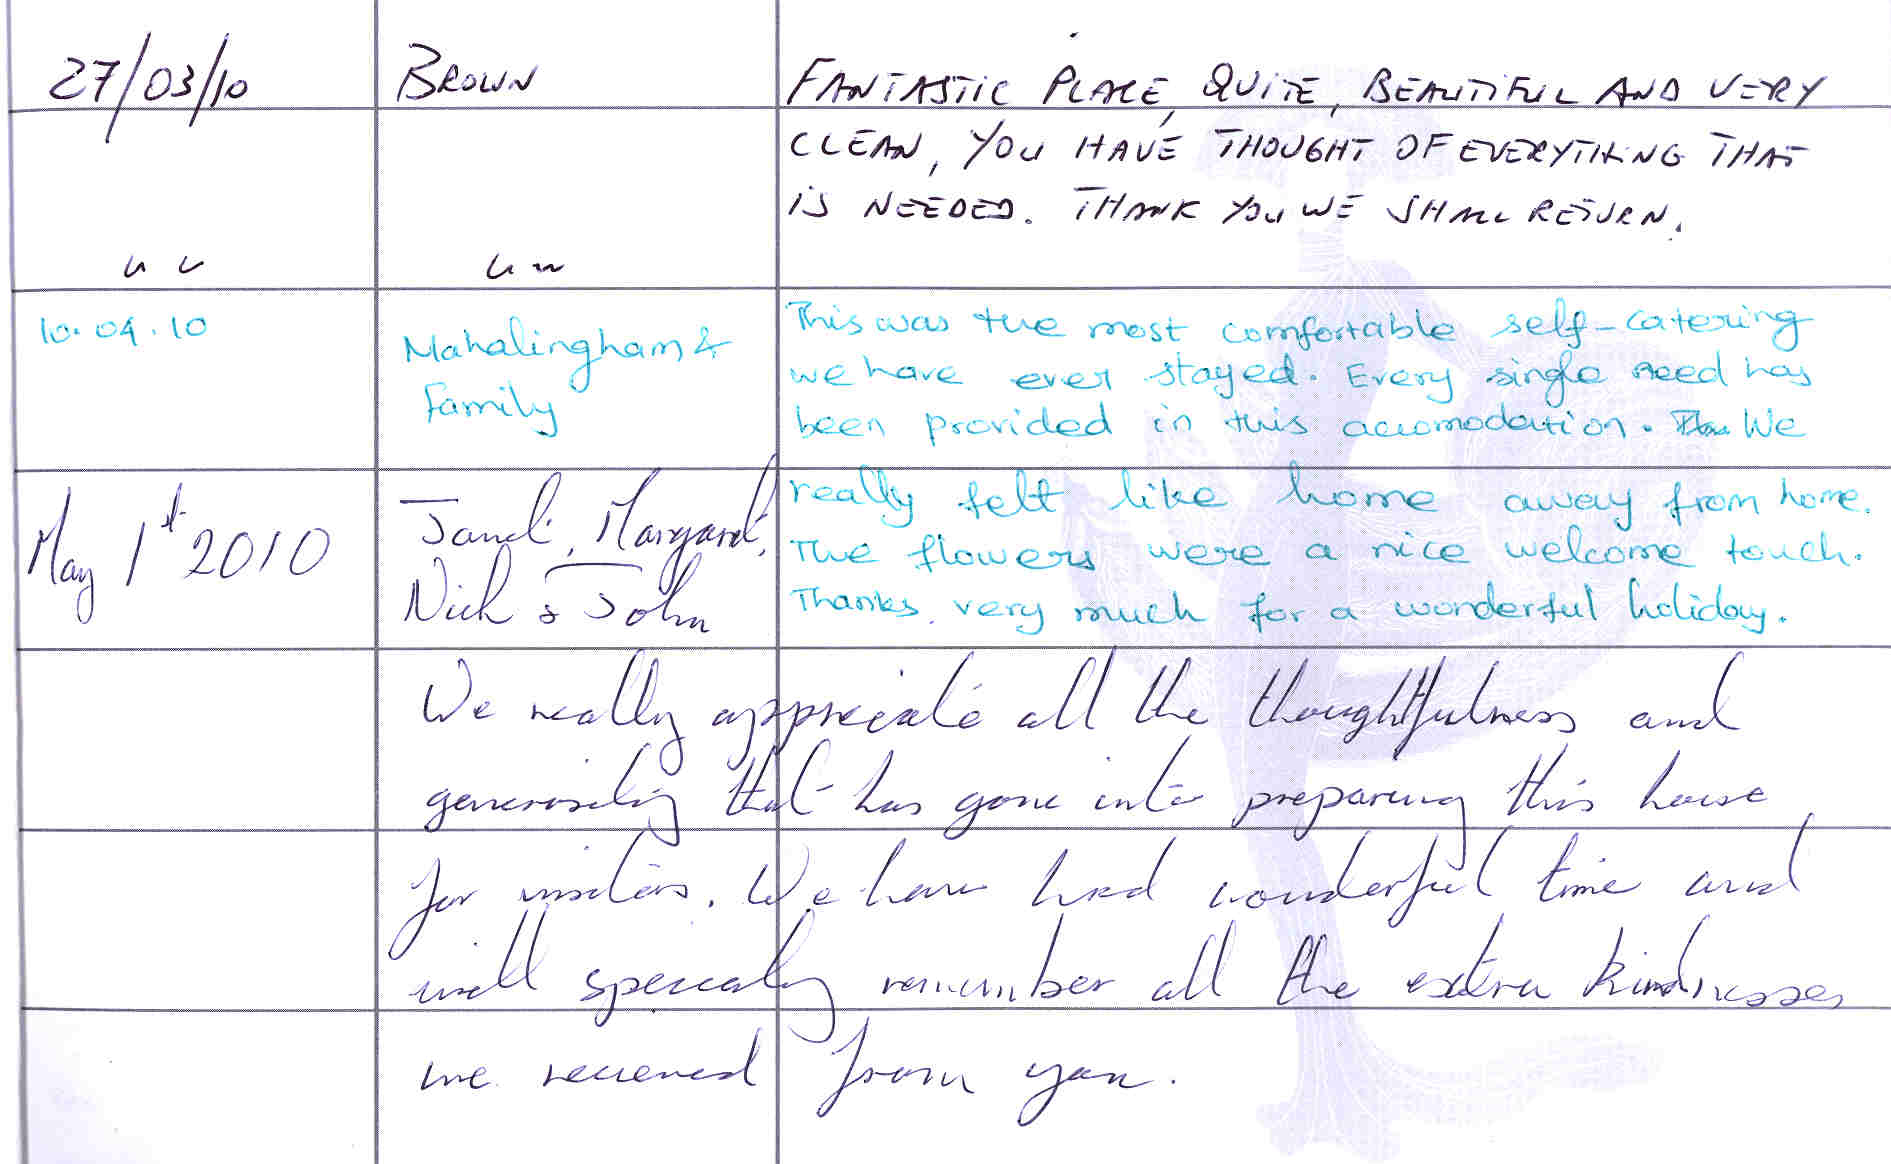 27/03/10 BROWN FANTASTIC PLACE, QUITE, BEAUTIFUL AND VERY
CLEAN, YOU HAVE THOUGHT OF EVERYTHING THAT
IS NEEDED. THANK YOU WE SHALL RETURN.
10.04.10 Mahalingham & Family
This was the most comfortable self-catering
we have ever stayed. Every single need has
been provided in this accomodation. We
really felt like home away from home.
The flowers were a nice welcome touch.
Thanks very much for a wonderful holiday.
May 1st 2010 Janet, Margaret,
Nick & John
We really appreciate all the thoughtfulness and
generosity that has gone into preparing this house
for visitors. We have had wonderful time and
will specially remember all the extra kindnesses
we received from you.